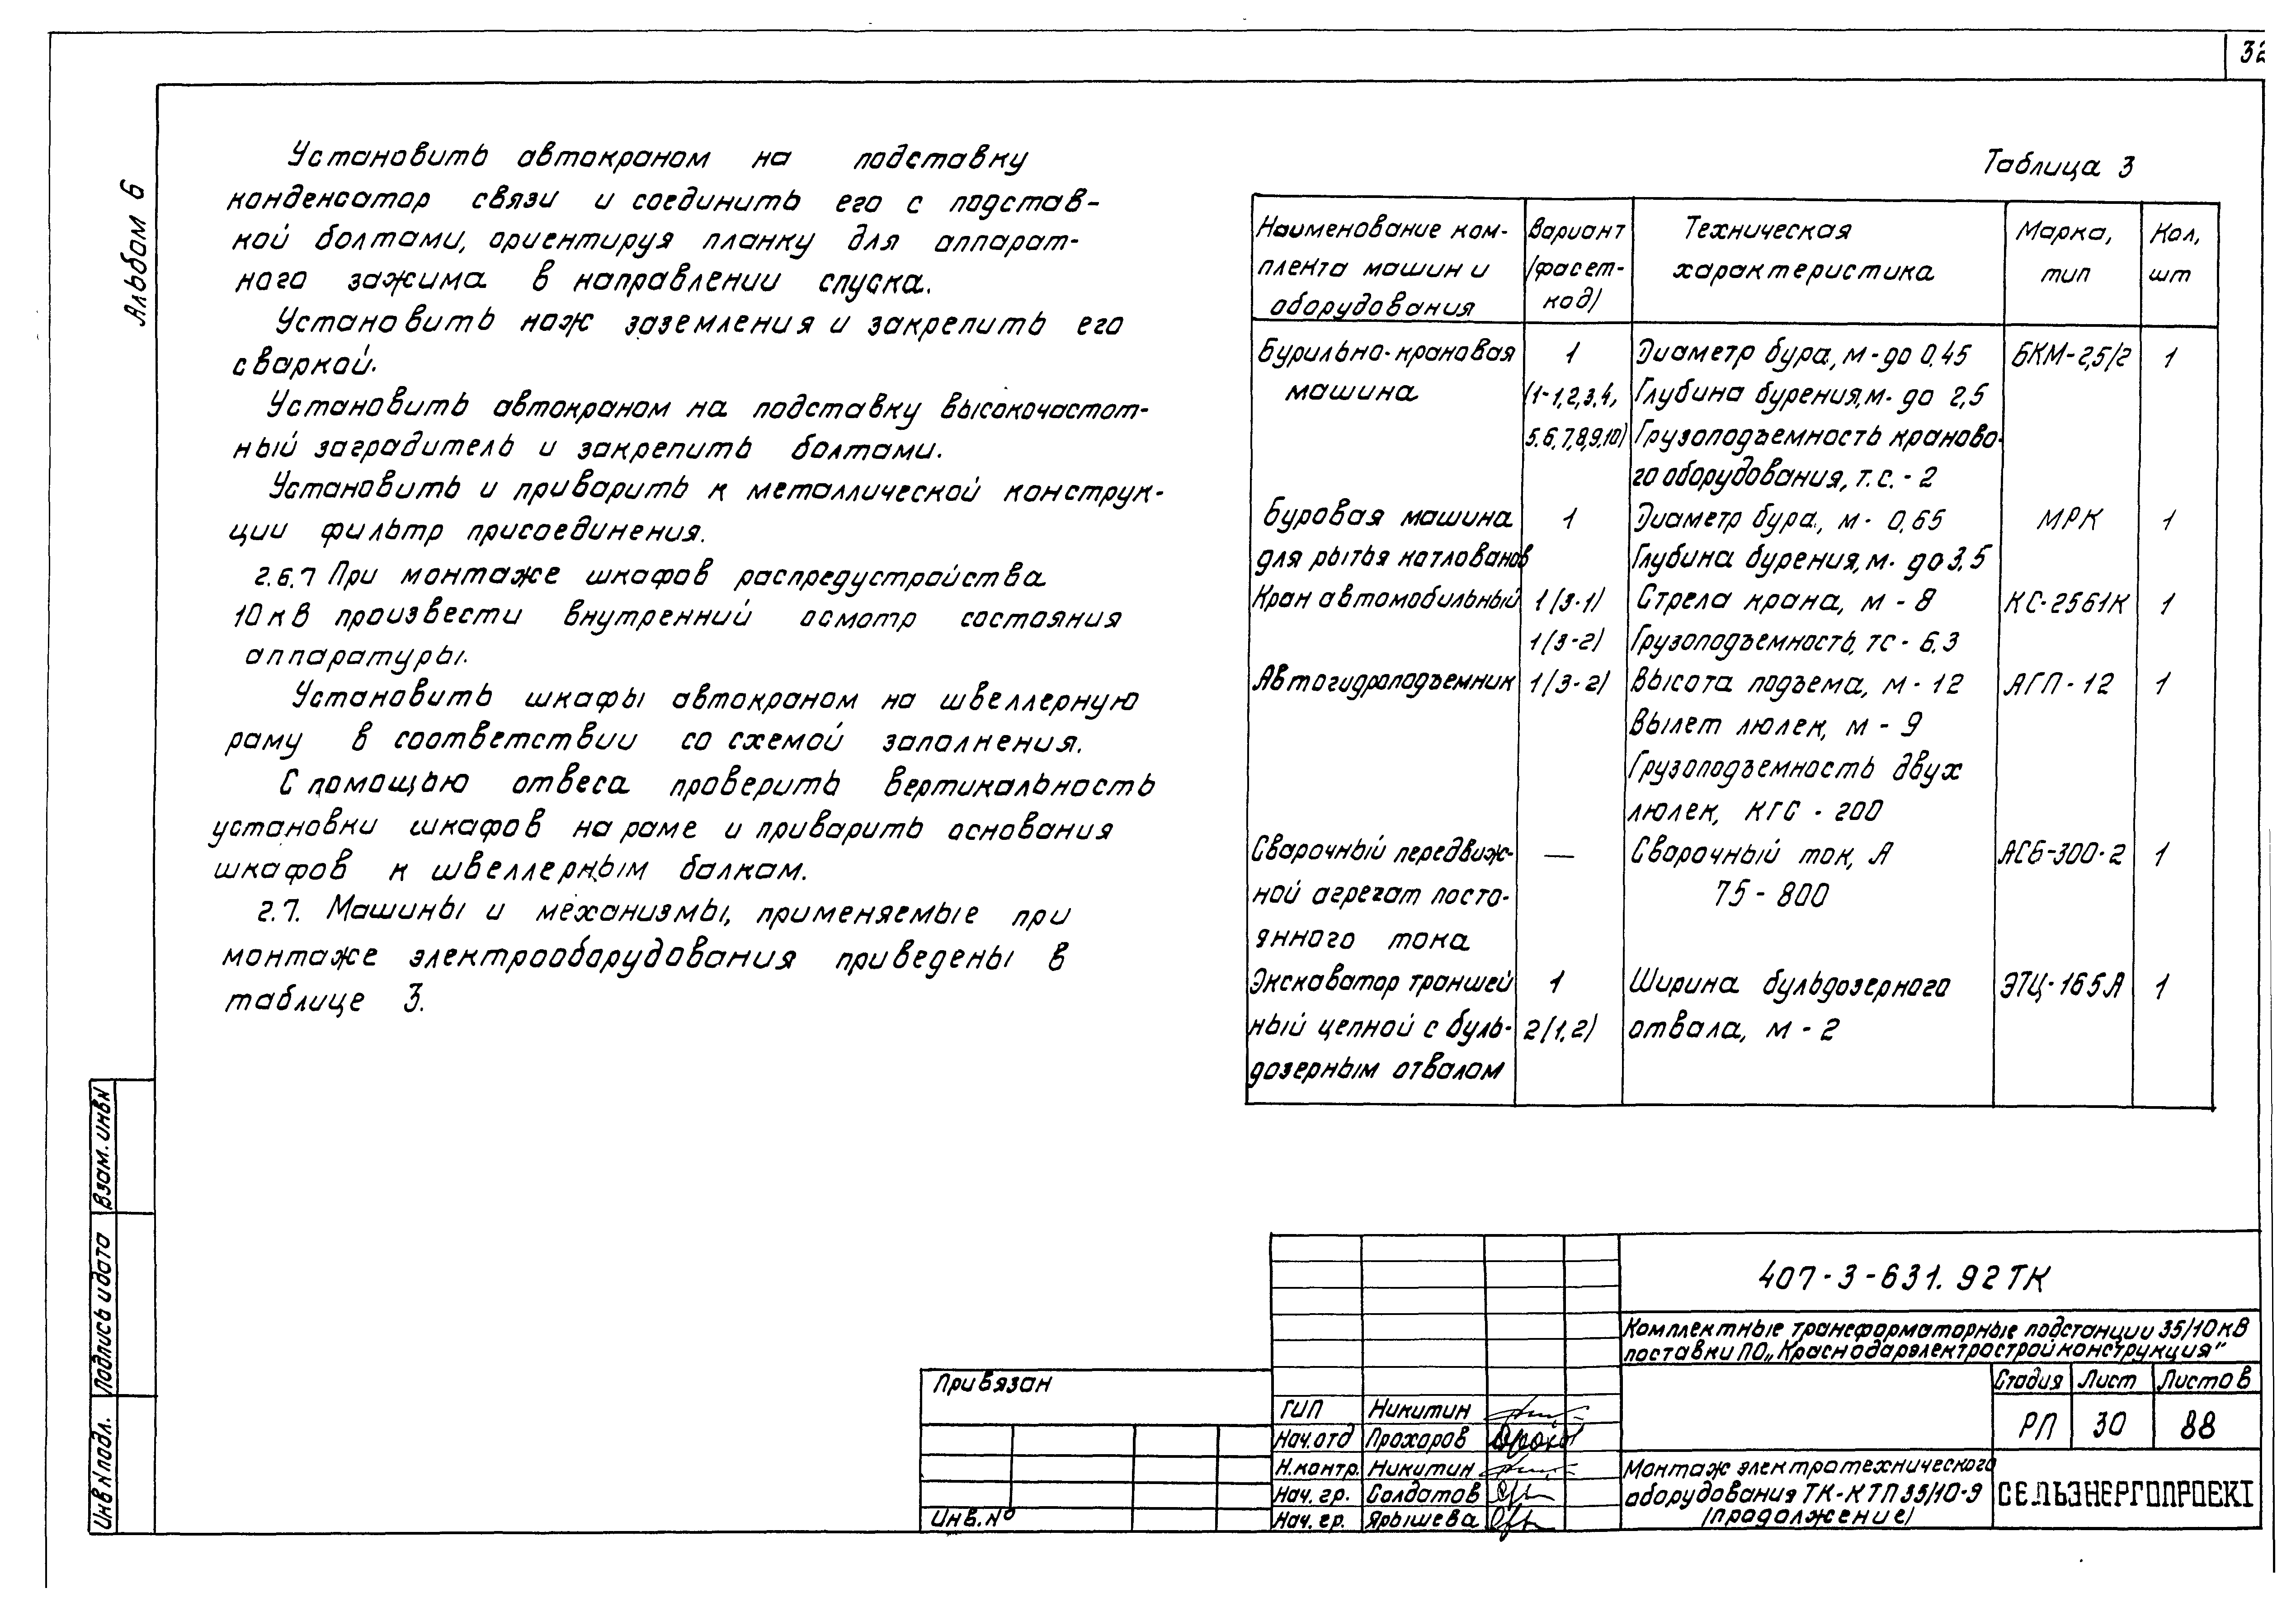 32
Альбом 6
Установить автокраном на подставку
конденсатор связи и соединить его с подстав-
кой болтами, ориентируя планку для аппарат-
ного зажима в направлении спуска.
Установить нож заземления и закрепить его
сваркой.
Установить автокраном на подставку высокочастот-
ный заградитель и закрепить болтами.
Установить и приварить к металлической конструк-
ции фильтр присоединения.
2.6.7 При монтаже шкафов распредустройства
10 кВ произвести внутренний осмотр состояния
аппаратуры.
Установить шкафы автокраном на швеллерную
раму в соответствии со схемой заполнения.
С помощью отвеса проверить вертикальность
установки шкафов на раме и приварить основания
шкафов к швеллерным балкам.
2.7. Машины и механизмы, применяемые при
монтаже электрооборудования приведены в
таблице 3.
Таблица 3
Наименование ком-
плекта машин и
оборудования
Вариант
/фасет-
код/
Техническая
характеристика
Марка,
тип
Кол,
шт
Бурильно-крановая
машина
1
(1-1,2,3,4,
5,6,7,8,9,10)
Диаметр бура, м - до 0,45
Глубина бурения, м - до 2,5
Грузоподъемность краново-
го оборудования, т.с. - 2
БКМ-2,5/2
1
Буровая машина
для рытья котлованов
1
Диаметр бура, м - 0,65
Глубина бурения, м - до 3,5
МРК
1
Кран автомобильный
1/3-1)
1/3-2)
Стрела крана, м - 8
Грузоподъемность, тс - 6.3
КС-2561К
1
Автогидроподъемник
1/3-2)
Высота подъема, м - 12
Вылет люлек, м - 9
Грузоподъемность двух
люлек, кгс - 200
АГП-12
1
Сварочный передвиж-
ной агрегат посто-
янного тока
—
Сварочный ток, А
75 - 800
АСБ-300-2
1
Экскаватор траншей
ный цепной с буль-
дозерным отвалом
1
2/1,2)
Ширина бульдозерного
отвала, м - 2
ЭТЦ-165А
1
Взам. инв N
Подпись и дата
Инв N подл.
407-3-631.92 ТК
Комплектные трансформаторные подстанции 35/10 кВ
поставки ПО „Краснодарэлектростройконструкция"
Стадия Лист Листов
РП 30 88
Привязан
Инв. №
ГИП Никитин
Нач. отд Прохоров
Н.контр. Никитин
Нач. гр. Солдатов
Нач. гр. Ярышева
Монтаж электротехнического
оборудования ТК-КТП 35/10-3
/продолжение/
СЕЛЬЭНЕРГОПРОЕКТ